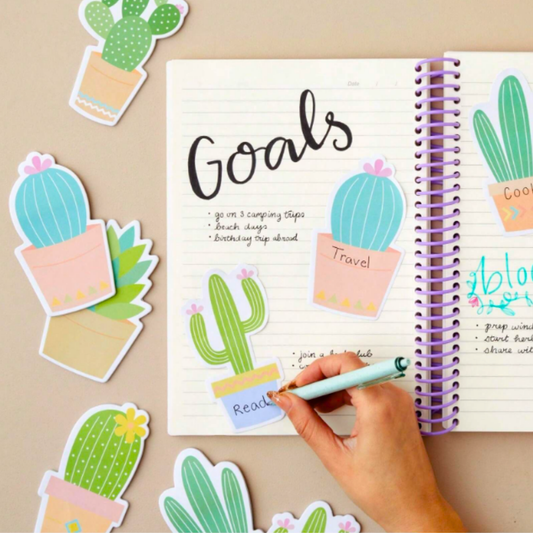 Goals
• go on 3 camping trips
• beach days
• birthday trip abroad
Travel
• join a book club
Read
Cook
• prep
• start
• share